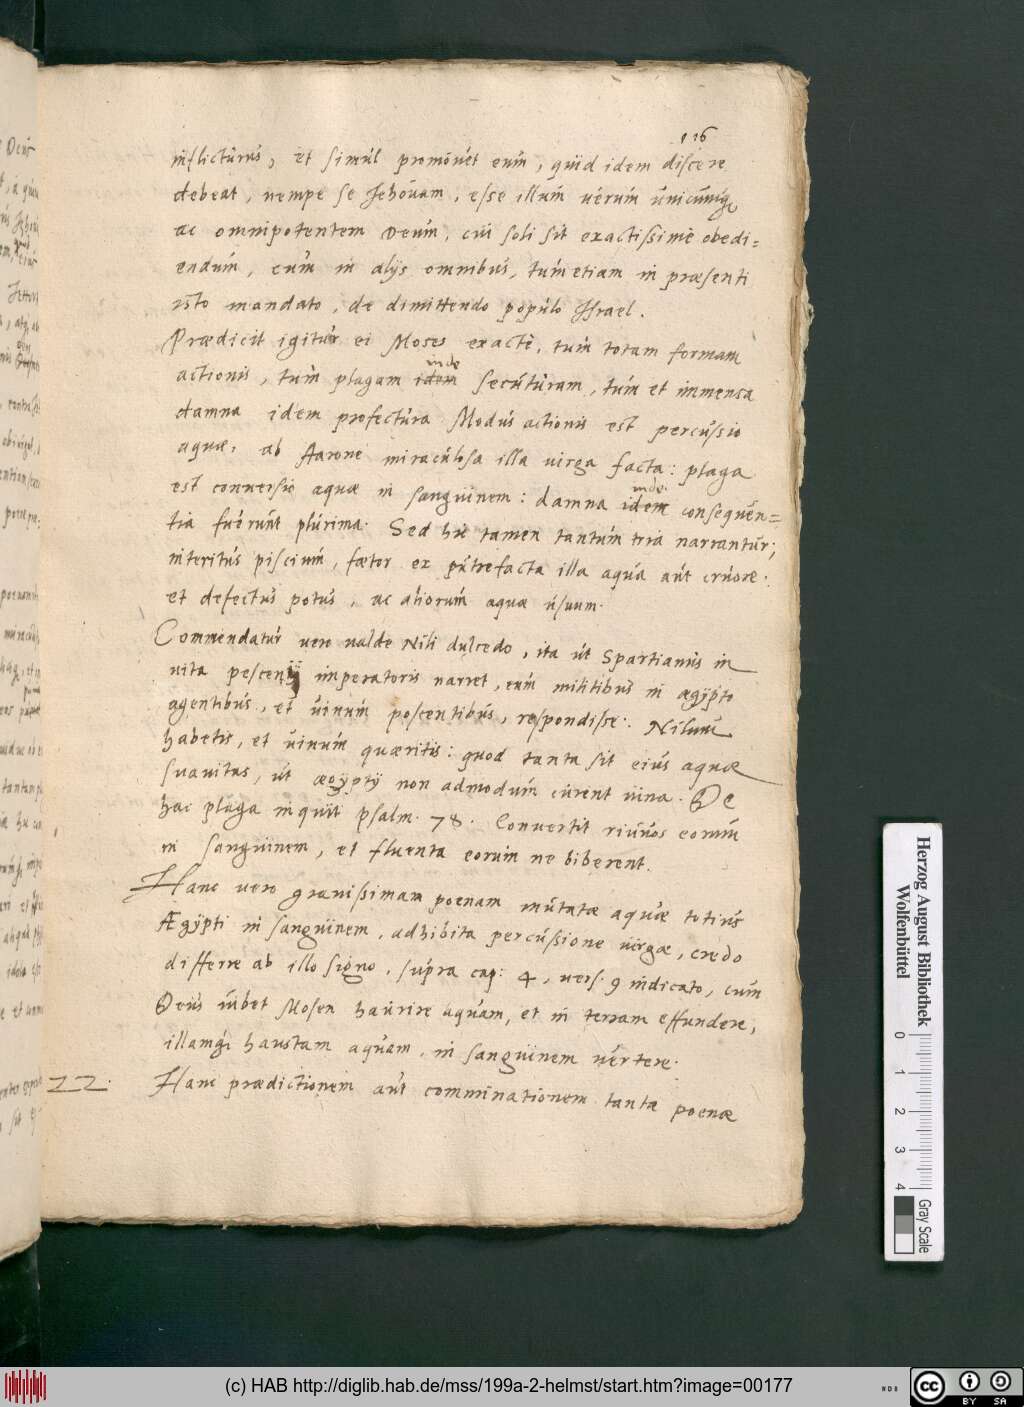 116
inflicturus, et simul promovet eum, quid idem discere
debeat, nempe se Jehovam, esse illum verum unicumq̃
ac omnipotentem Deum, cui soli sit exactissimè obedi=
endum, cum in alijs omnibus, tum etiam in præsenti
isto mandato, de dimittendo populo Israel.
Prædicit igitur ei Moses exactè, tum totam formam
inde
actionis, tum plagam idem secuturam, tum et immensa
damna idem profectura Modus actionis est percussio
aquæ, ab Aarone miraculosa illa virga facta: plaga
est conversio aquæ in sanguinem: damna idem consequen=
inde
tia fuerunt plurima. Sed hic tamen tantum tria narrantur;
interitus piscium, fætor ex putrefacta illa aqua aut cruore.
et defectus potus, ac aliorum aquæ usuum.
Commendatur vero valde Nili dulcedo, ita ut Spartianus in
vita pescenij imperatoris narret, eum militibus in ægypto
agentibus, et vinum poscentibus, respondisse. Nilum
habetis, et vinum quæritis: quod tanta sit eius aquæ
suavitas, ut ægyptij non admodum curent vina. De
hac plaga inquit psalm. 78. Convertit rivos eorum
in sanguinem, et fluenta eorum ne biberent.
Hanc vero gravissimam poenam mutatæ aquæ totius
Ægypti in sanguinem, adhibita percussione virgæ, credo
differre ab illo signo, supra cap: 4, vers. 9 indicato, cum
Deus iubet Mosen haurire aquam, et in terram effundere,
illamq̃ haustam aquam, in sanguinem vertere.
22. Hanc prædictionem aut comminationem tanta poenæ
Herzog August Bibliothek
Wolfenbüttel
0 1 2 3 4
Gray Scale
(c) HAB http://diglib.hab.de/mss/199a-2-helmst/start.htm?image=00177
cc BY SA